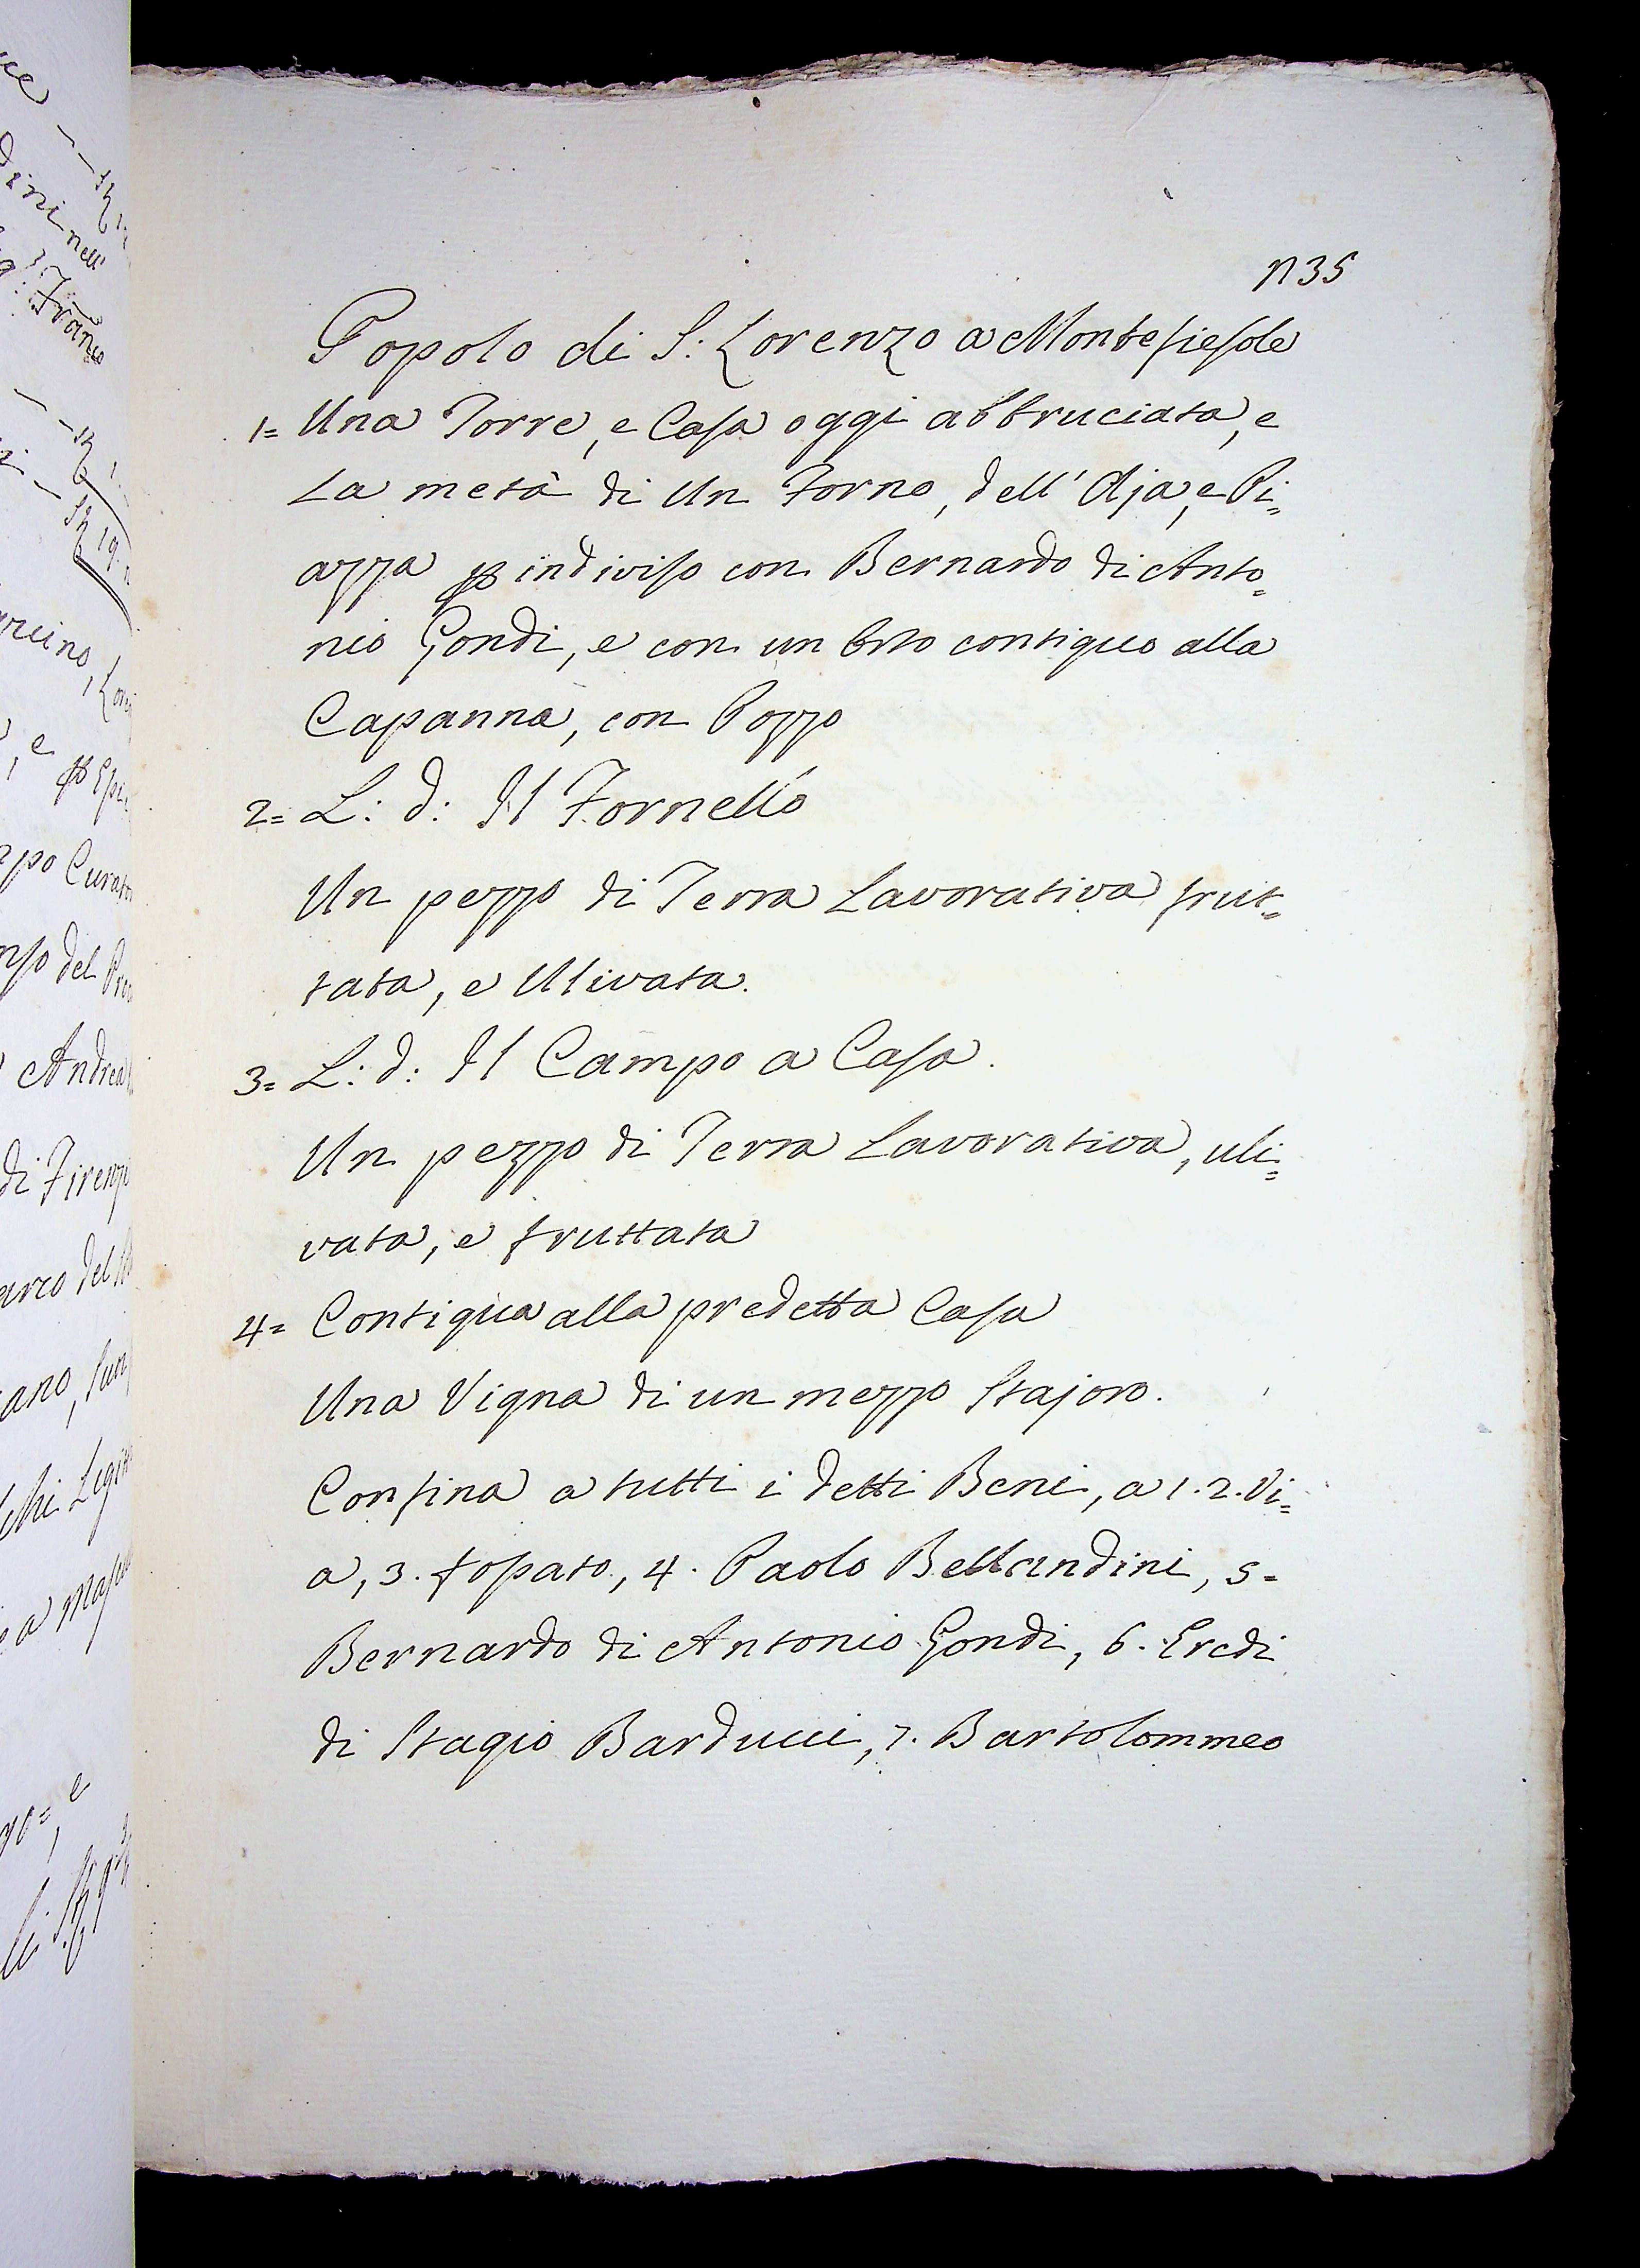 n 35
Popolo di S: Lorenzo a Montefiesole
1= Una Torre, e Casa oggi abbruciata, e
La metà di Un Forno, dell' Aja, e Pi=
azza p indiviso con Bernardo di Anto=
nio Gondi, e con un Orto contiguo alla
Capanna, con Pozzo
2= L: d: Il Fornello
Un pezzo di Terra Lavorativa frut=
tata, e Ulivata.
3= L: d: Il Campo a Casa.
Un pezzo di Terra Lavorativa, uli=
vata, e fruttata
4= Contigua alla predetta Casa
Una Vigna di un mezzo Stajoro.
Confina a tutti i detti Beni, a 1. 2. Vi=
a, 3. fossato, 4. Paolo Bellandini, 5=
Bernardo di Antonio Gondi, 6. Eredi
di Stagio Barducci, 7. Bartolommeo